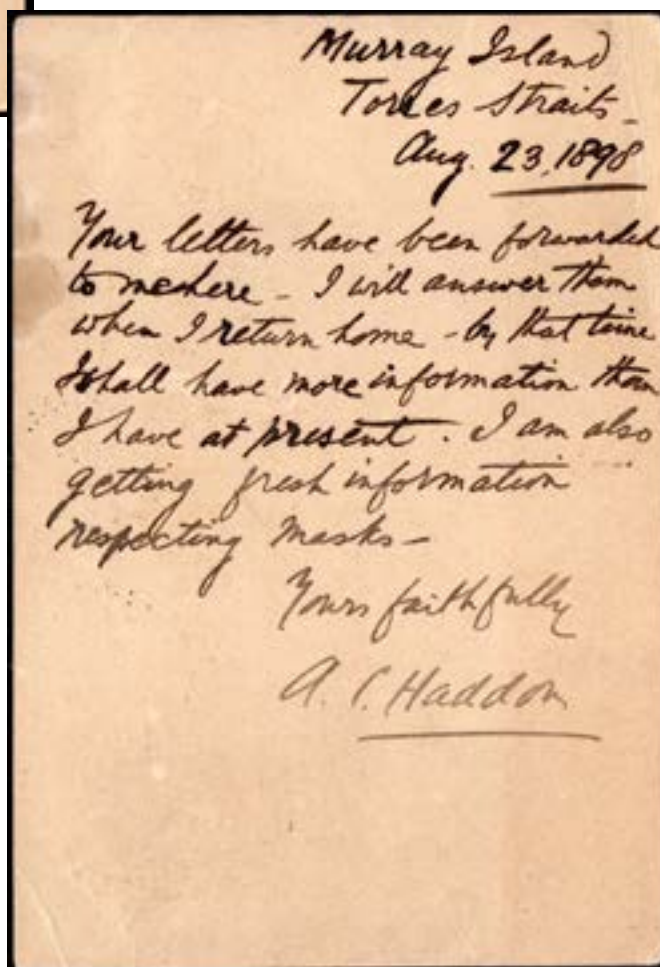 Murray Island
Torres Straits -
Aug. 23, 1898
Your letters have been forwarded
to me here - I will answer them
when I return home - by that time
I shall have more information than
I have at present. I am also
getting fresh information
respecting masks -
Yours faithfully
A. C. Haddon